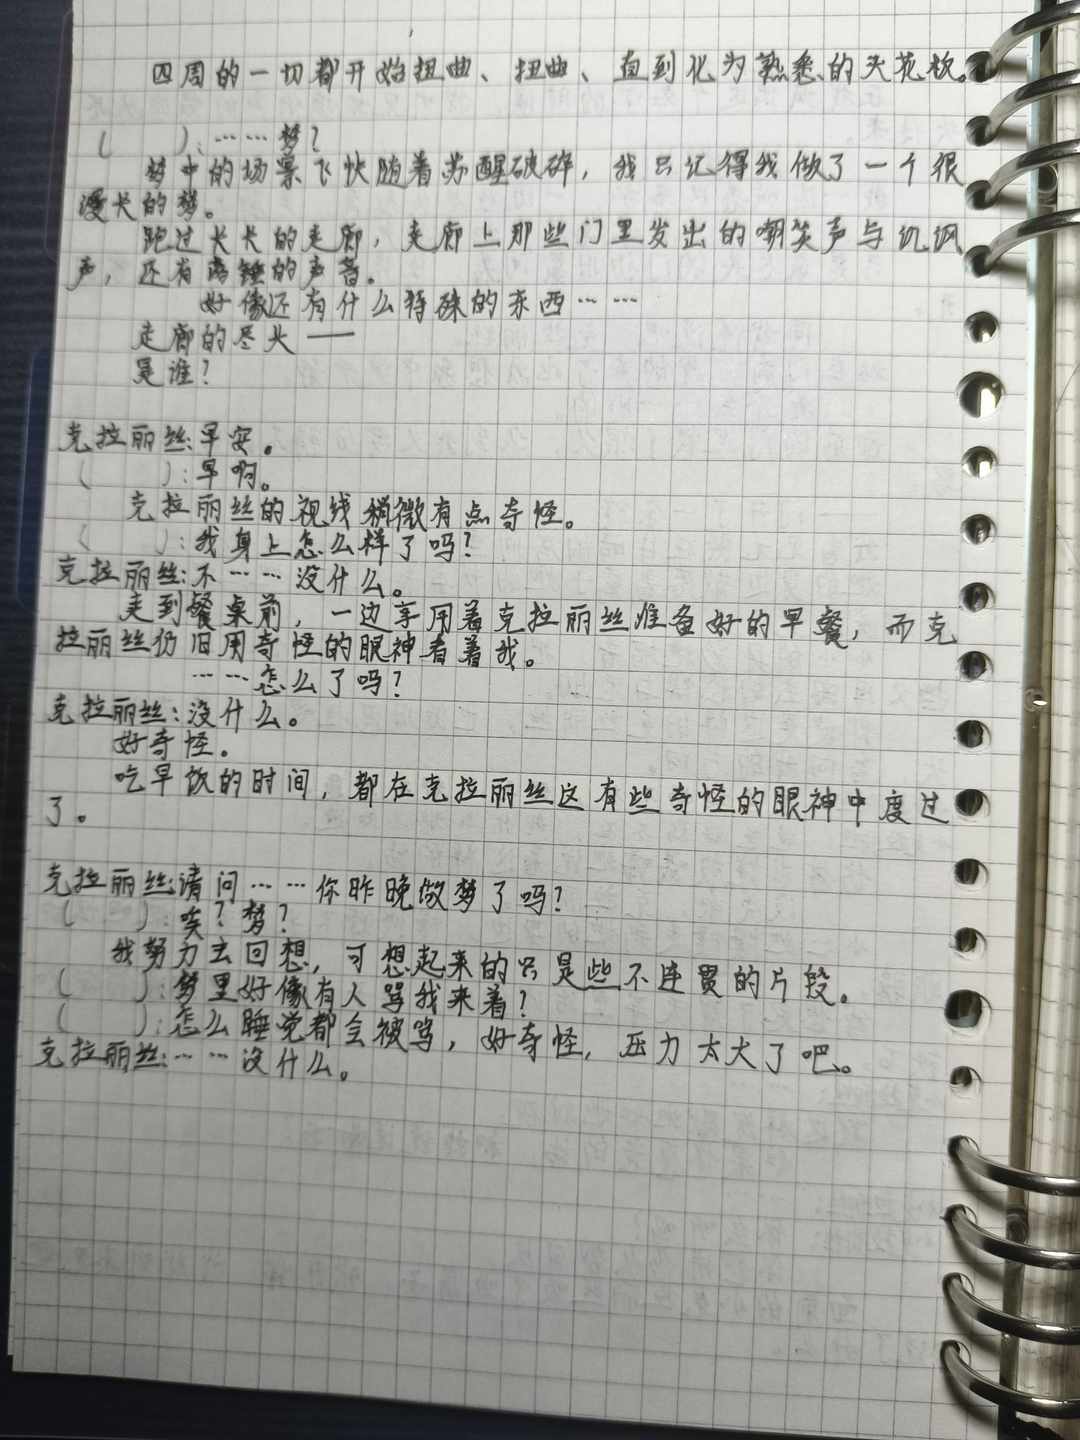 四周的一切都开始扭曲、扭曲、直到化为熟悉的天花板。
(　　):……梦?
梦中的场景飞快随着苏醒破碎,我只记得我做了一个很
漫长的梦。
跑过长长的走廊,走廊上那些门里发出的嘲笑声与讥讽
声,还有的声音。
好像还有什么特殊的东西……
走廊的尽头——
是谁?
克拉丽丝:早安。
(　　):早啊。
克拉丽丝的视线稍微有点奇怪。
(　　):我身上怎么样了吗?
克拉丽丝:不……没什么。
走到餐桌前,一边享用着克拉丽丝准备好的早餐,而克
拉丽丝仍旧用奇怪的眼神看着我。
……怎么了吗?
克拉丽丝:没什么。
好奇怪。
吃早饭的时间,都在克拉丽丝这有些奇怪的眼神中度过
了。
克拉丽丝:请问……你昨晚做梦了吗?
(　　):唉?梦?
我努力去回想,可想起来的只是些不连贯的片段。
(　　):梦里好像有人骂我来着?
(　　):怎么睡觉都会被骂,好奇怪,压力太大了吧。
克拉丽丝:……没什么。